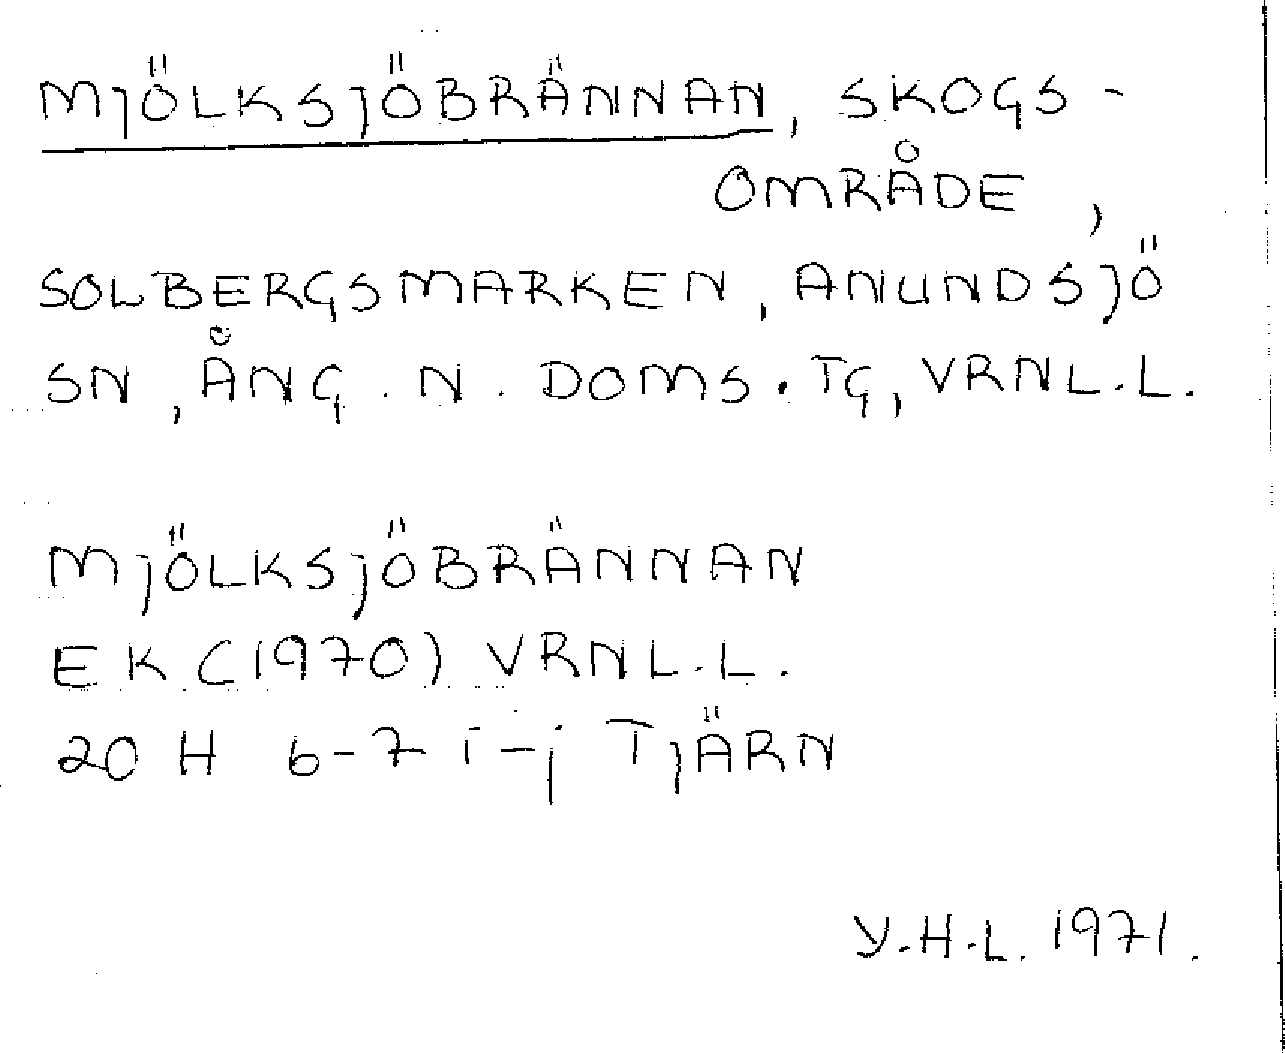 MJÖLKSJÖBRÄNNAN, SKOGS-
OMRÅDE,
SOLBERGSMARKEN, ANUNDSJÖ
SN, ÅNG. N. DOMS. TG, VRNL.L.
MJÖLKSJÖBRÄNNAN
EK (1970) VRNL.L.
20 H 6-7 i-j TJÄRN
Y.H.L. 1971.